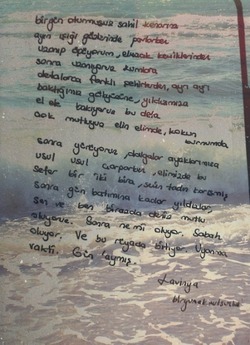 birgün oturmuşuz sahil kenarına
ayın ışığı gözlerinde parlarken
uzanıp öpüyorum, elmacık kemiklerinden
sonra uzanıyoruz kumlara
farklı ayrı ayrı
baktığımız gökyüzüne, yıldızımıza
el ele bakıyoruz bu defa
çok mutluyuz elin elimde, kokun
burnumda
sonra yürüyoruz, dalgalar ayaklarımıza
usul usul çarparken, elimizde bu
sefer bir iki bira,
sonra gün batımına kadar yıldızlar
sen ve ben birazda deniz mutlu
oluyoruz. Sonra ne mi oluyor. Sabah
oluyor. Ve bu rüyada bitiyor. Uyanma
vakti. Gün aymış.
Lavinya